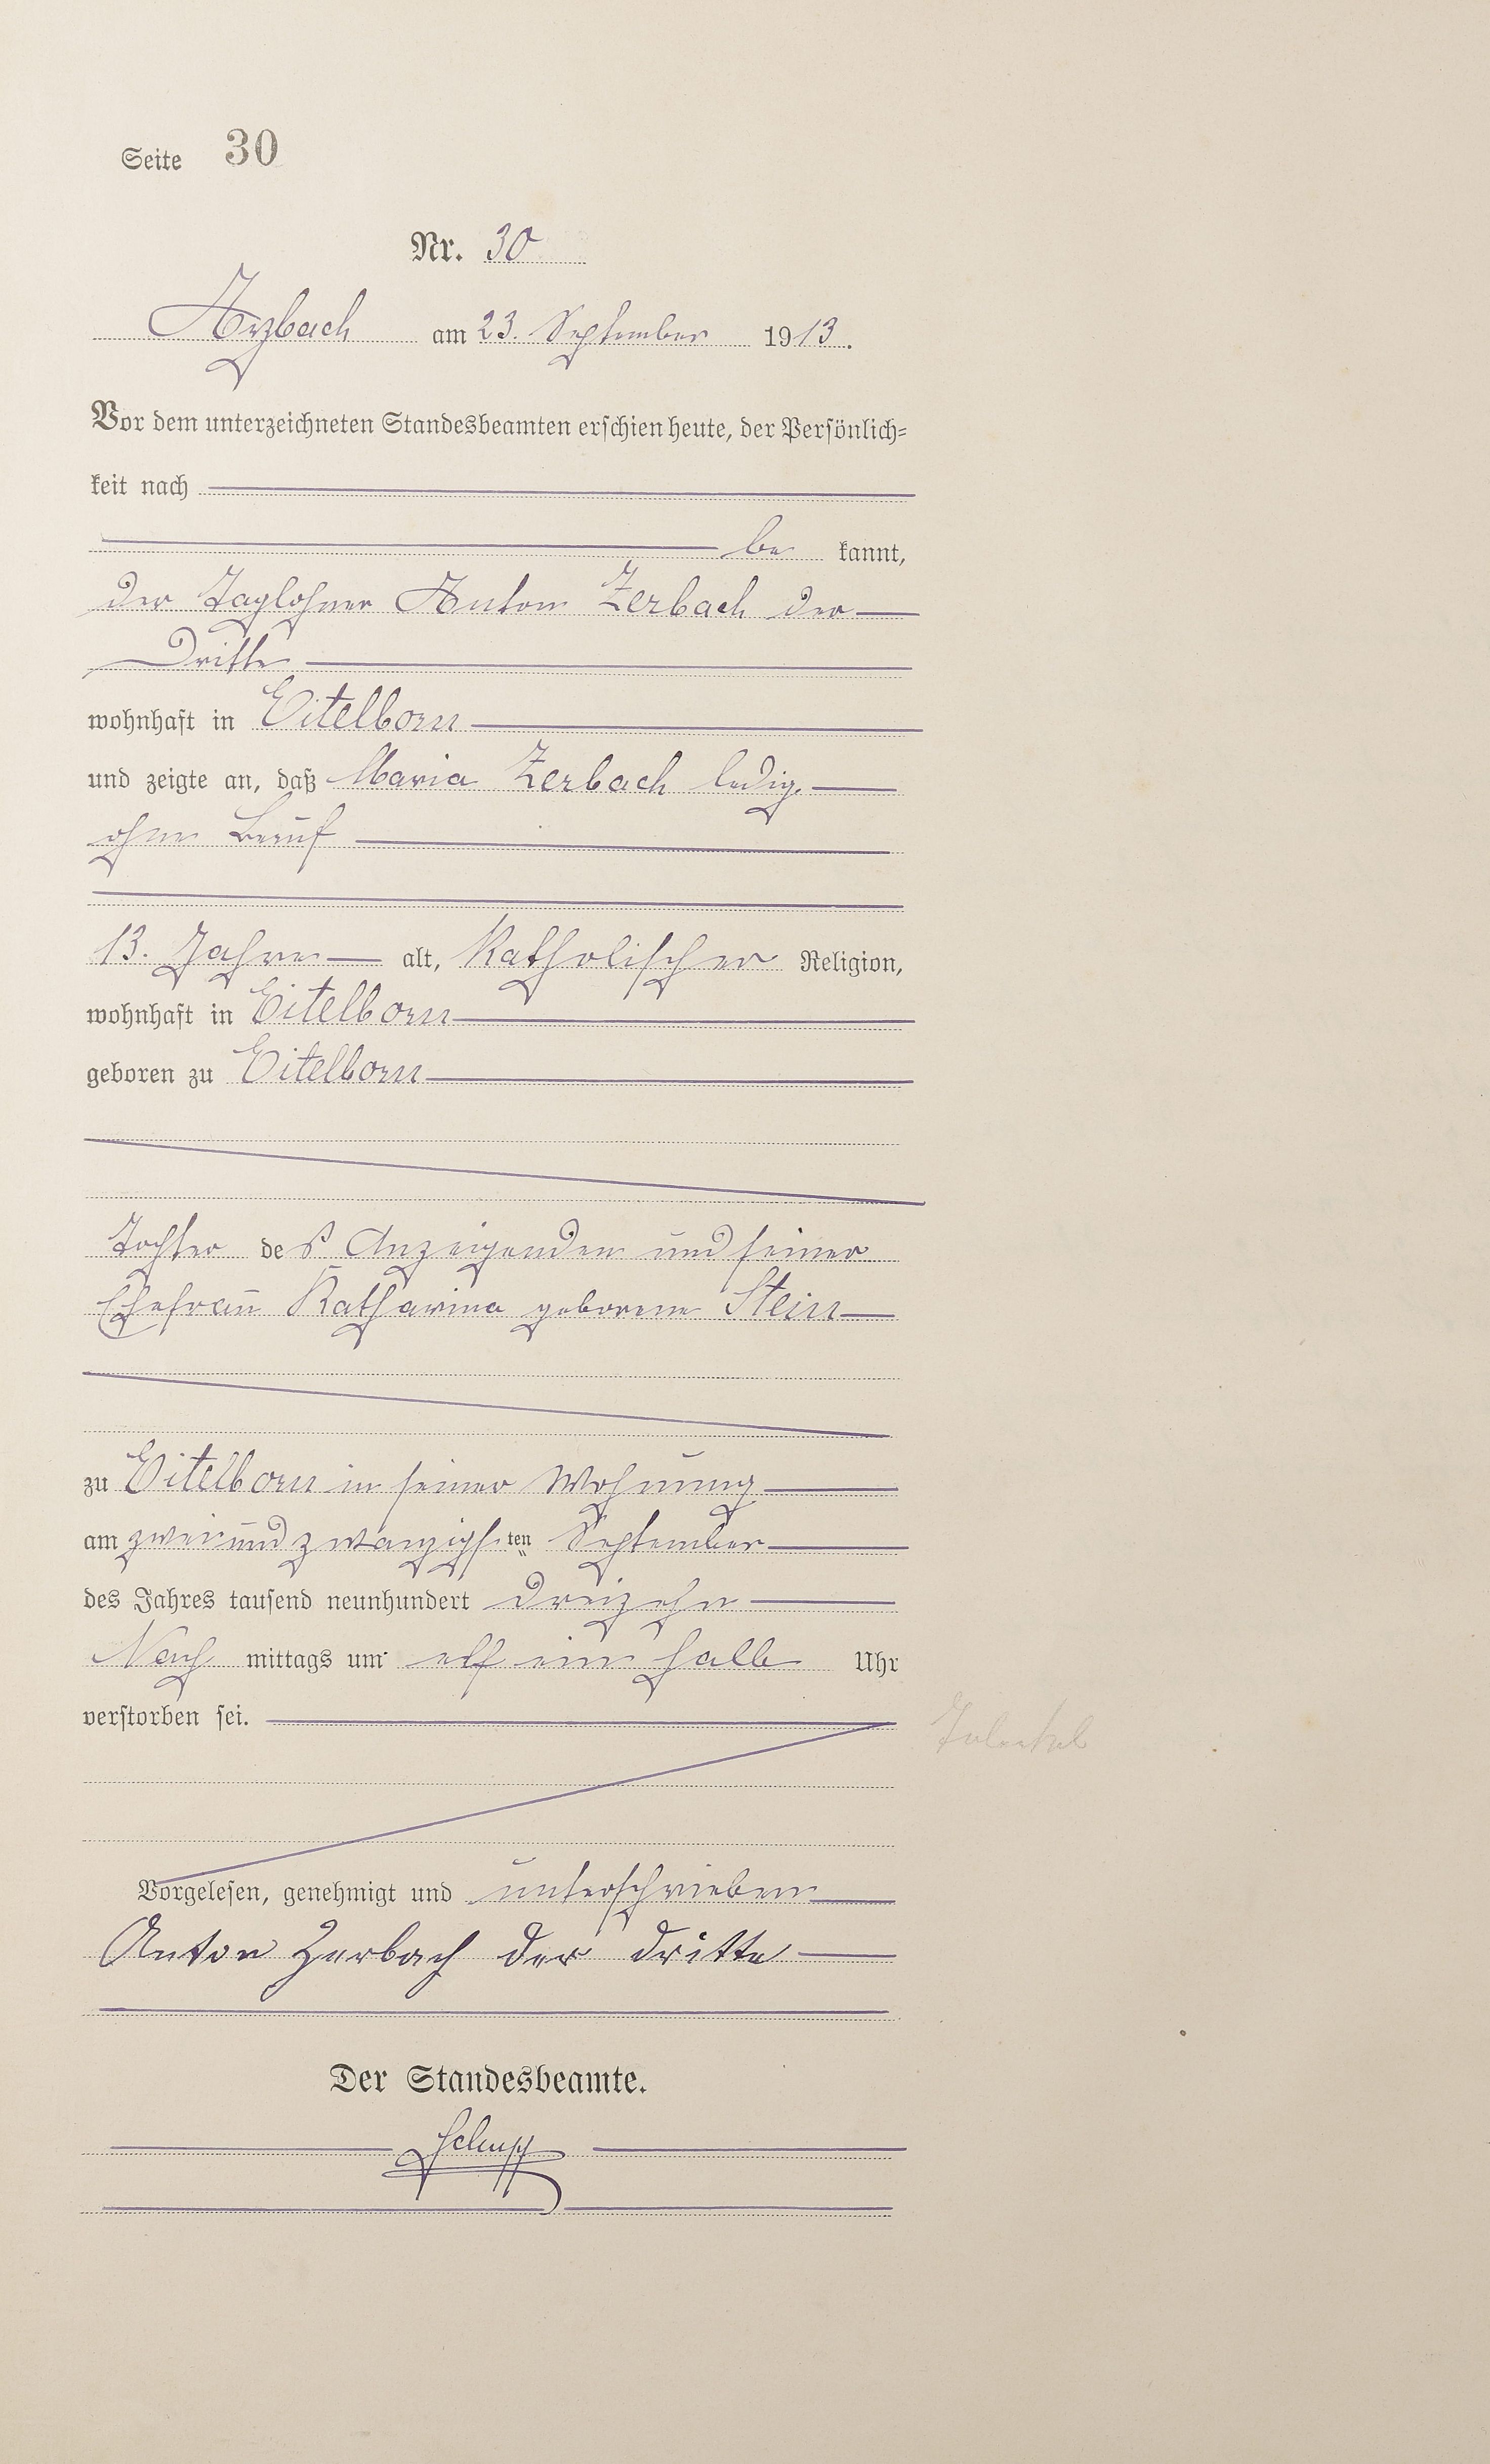 Seite 30
Nr. 30
Arzbach am 23. September 1913.
Vor dem unterzeichneten Standesbeamten erschien heute, der Persönlich=
keit nach
be kannt,
der Taglohner Anton Zerbach der
Dritte
wohnhaft in Eitelborn
und zeigte an, daß Maria Zerbach ledig,
ohne Beruf
13. Jahre alt, Katholischer Religion,
wohnhaft in Eitelborn
geboren zu Eitelborn
Tochter des Anzeigenden und seiner
Ehefrau Katharina geborene Stein
zu Eitelborn in seiner Wohnung
am zweiundzwanzigsten September
des Jahres tausend neunhundert dreizehn
Nach mittags um elf ein halb Uhr
verstorben sei.
Vorgelesen, genehmigt und unterschrieben
Anton Zerbach der dritte
Der Standesbeamte.